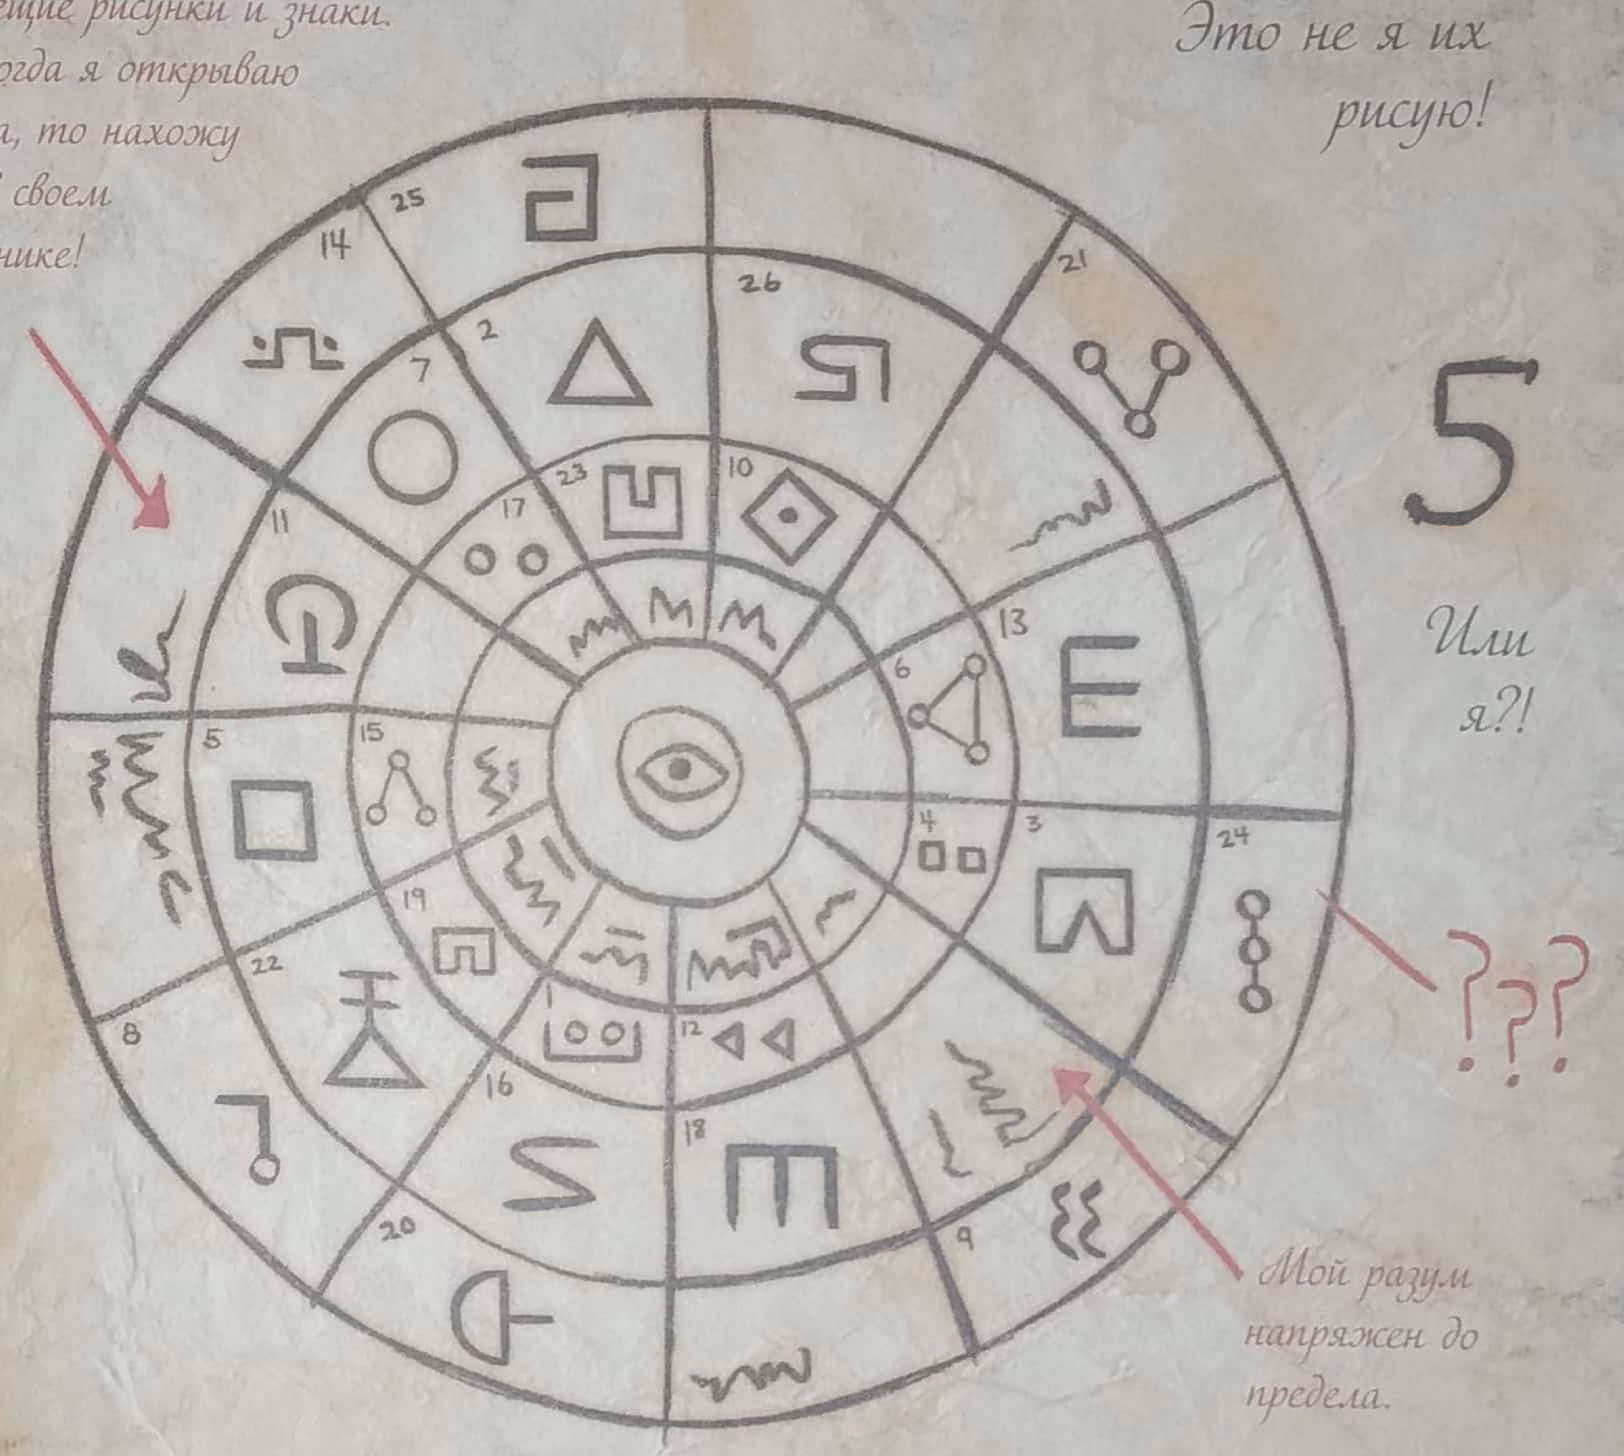 рисунки и знаки.
я открываю
то нахожу
своем
Это не я их
рисую!
5
Или
я?!
25
14
26
21
2
7
23
10
17
11
13
6
5
15
4
3
24
19
22
8
1
12
16
18
20
9
???
Мой разум
напряжен до
предела.